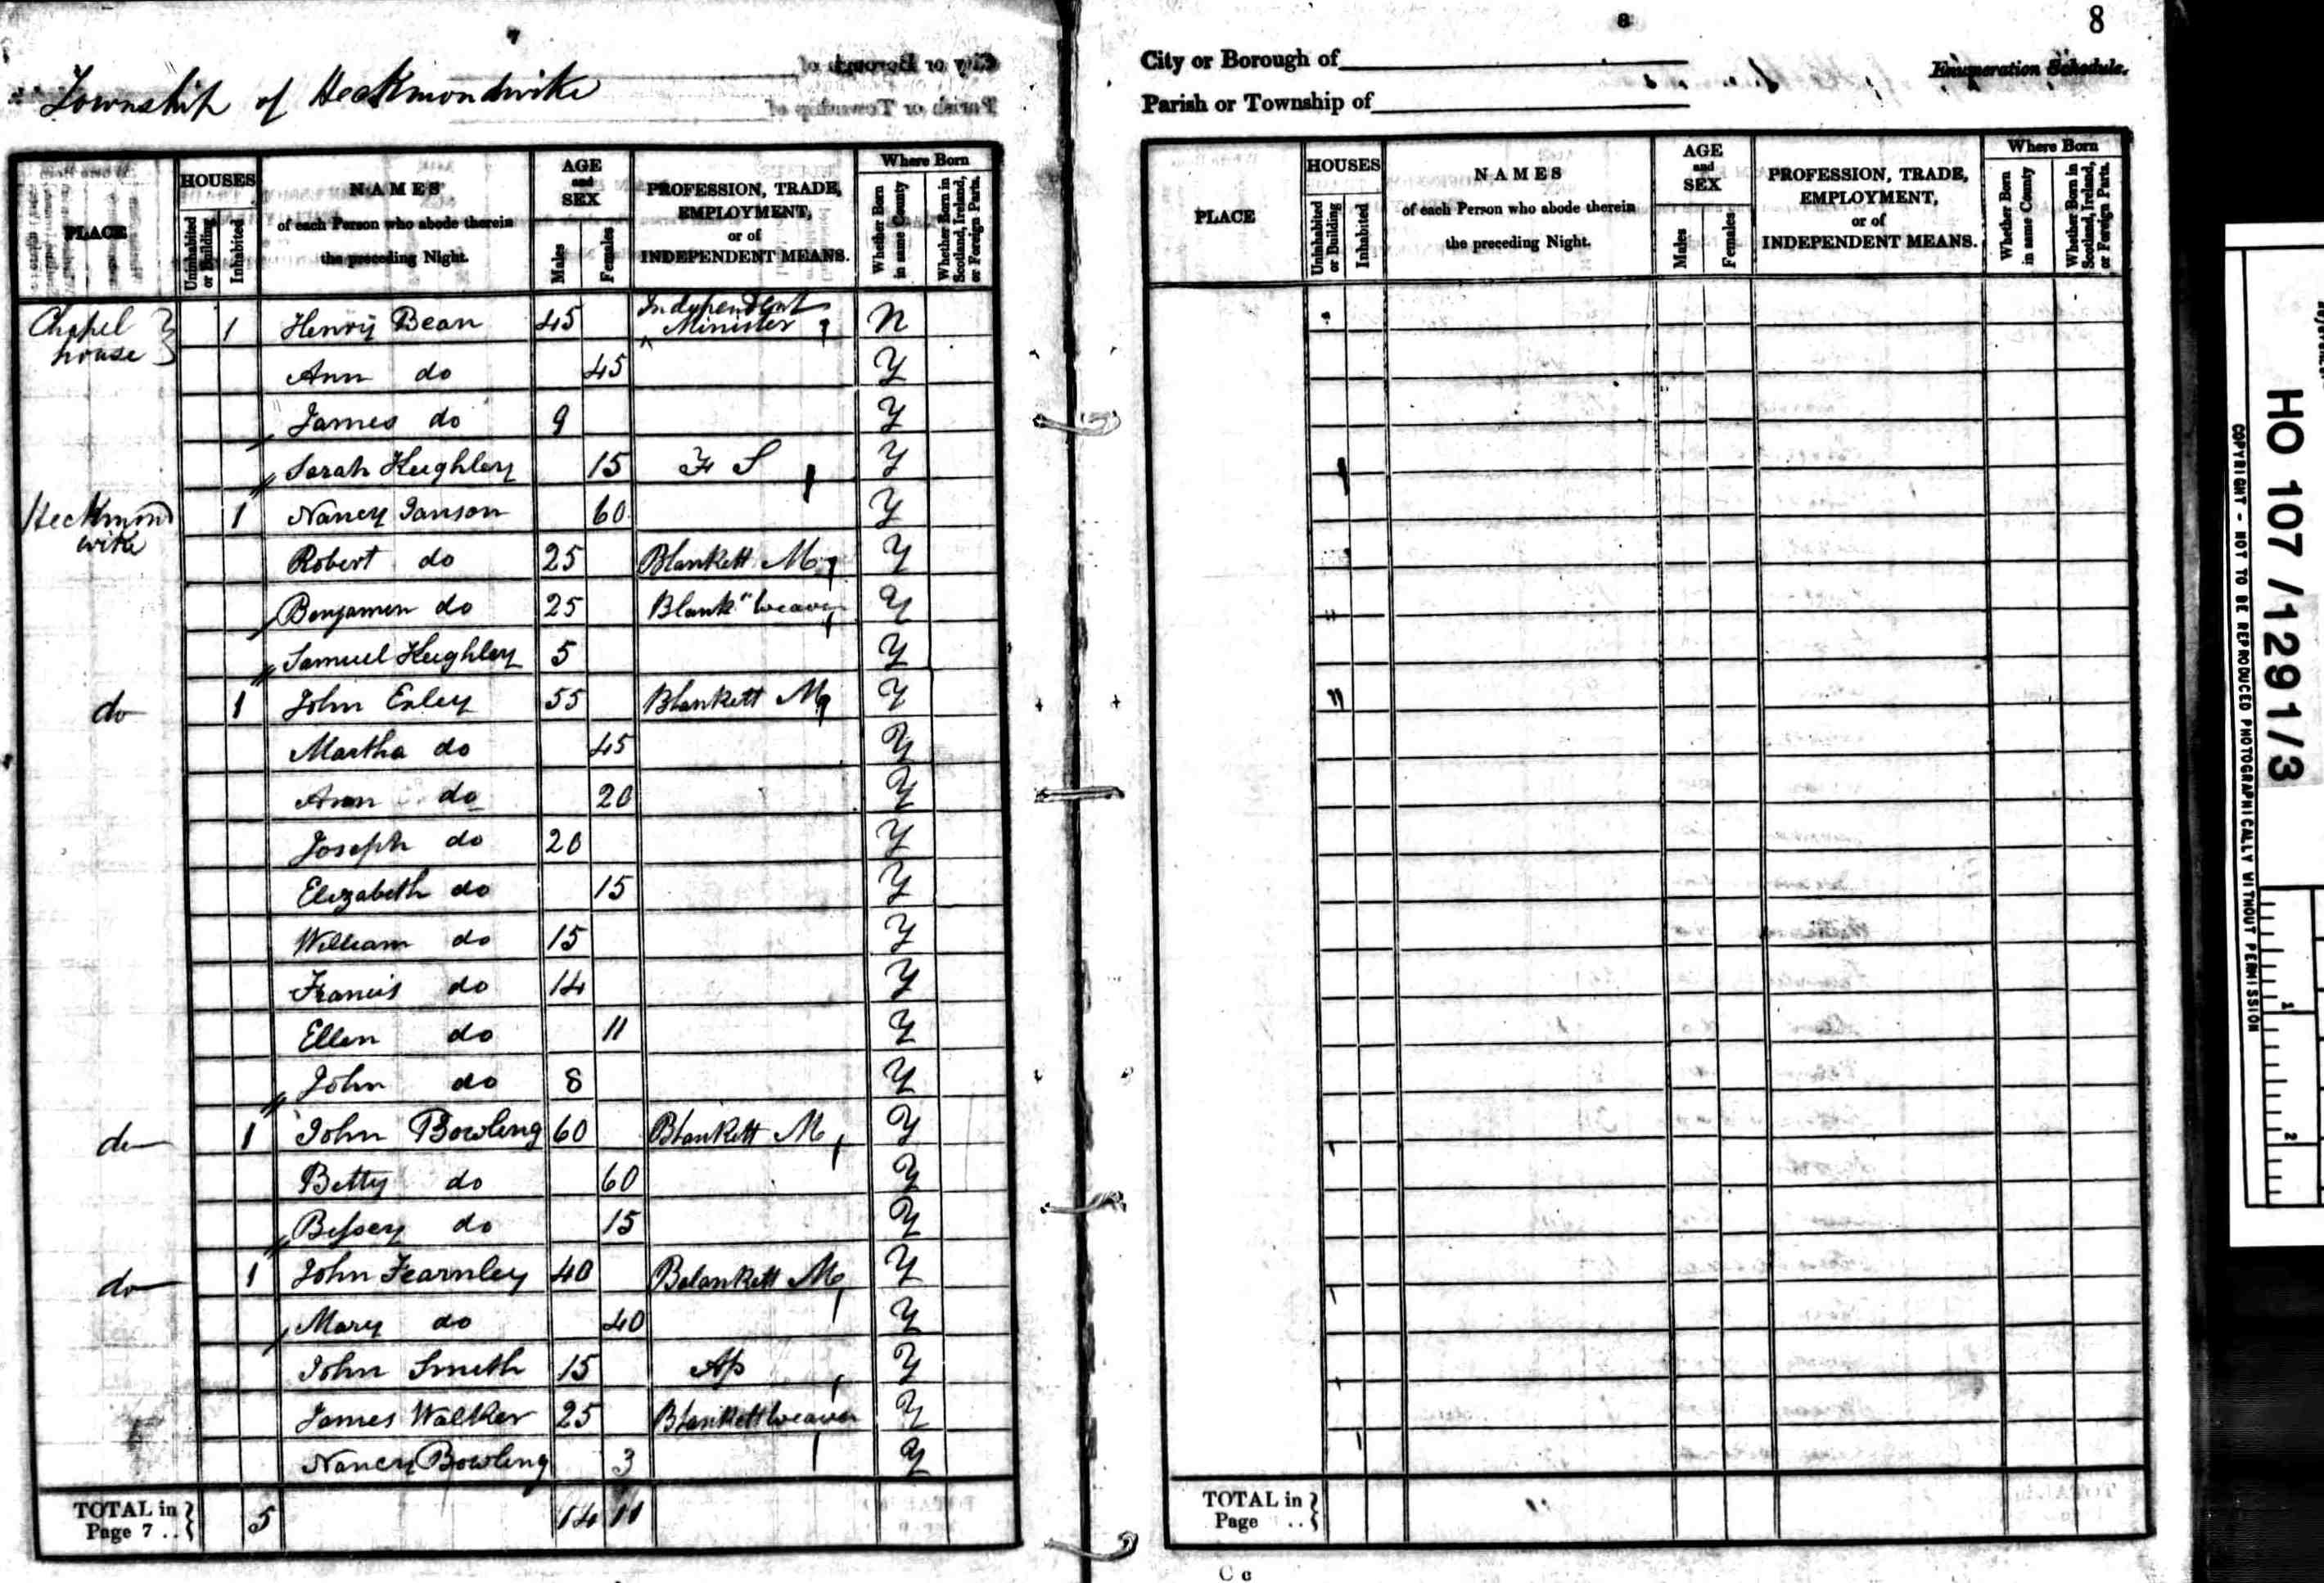 7
Township of Heckmondwike
City or Borough of
Parish or Township of
PLACE
HOUSES
Uninhabited or Building
Inhabited
NAMES
of each Person who abode therein
the preceding Night.
AGE
and
SEX
Males
Females
PROFESSION, TRADE,
EMPLOYMENT,
or of
INDEPENDENT MEANS.
Where Born
Whether Born in same County
Whether Born in Scotland, Ireland, or Foreign Parts.
Chapel house 1 Henry Bean 45 Independent Minister N
Ann do 45 Y
James do 9 Y
Sarah Keighley 15 F S Y
Heckmond wike 1 Nancy Janson 60 Y
Robert do 25 Blankett M Y
Benjamen do 25 Blank" Weaver Y
Samuel Keighley 5 Y
do 1 John Exley 55 Blankett M Y
Martha do 45 Y
Ann do 20 Y
Joseph do 20 Y
Elizabeth do 15 Y
William do 15 Y
Francis do 14 Y
Ellen do 11 Y
John do 8 Y
do 1 John Bowling 60 Blankett M Y
Betty do 60 Y
Bessey do 15 Y
do 1 John Fearnley 40 Balankett M Y
Mary do 40 Y
John Smith 15 Ap Y
James Walker 25 Blankett Weaver Y
Nancy Bowling 3 Y
TOTAL in Page 7 .. 5 14 11
8
8
City or Borough of
Parish or Township of
Enumeration Schedule.
PLACE
HOUSES
Uninhabited or Building
Inhabited
NAMES
of each Person who abode therein
the preceding Night.
AGE
and
SEX
Males
Females
PROFESSION, TRADE,
EMPLOYMENT,
or of
INDEPENDENT MEANS.
Where Born
Whether Born in same County
Whether Born in Scotland, Ireland, or Foreign Parts.
TOTAL in
Page ..
C c
HO 107 /1291/3
COPYRIGHT - NOT TO BE REPRODUCED PHOTOGRAPHICALLY WITHOUT PERMISSION
1
2